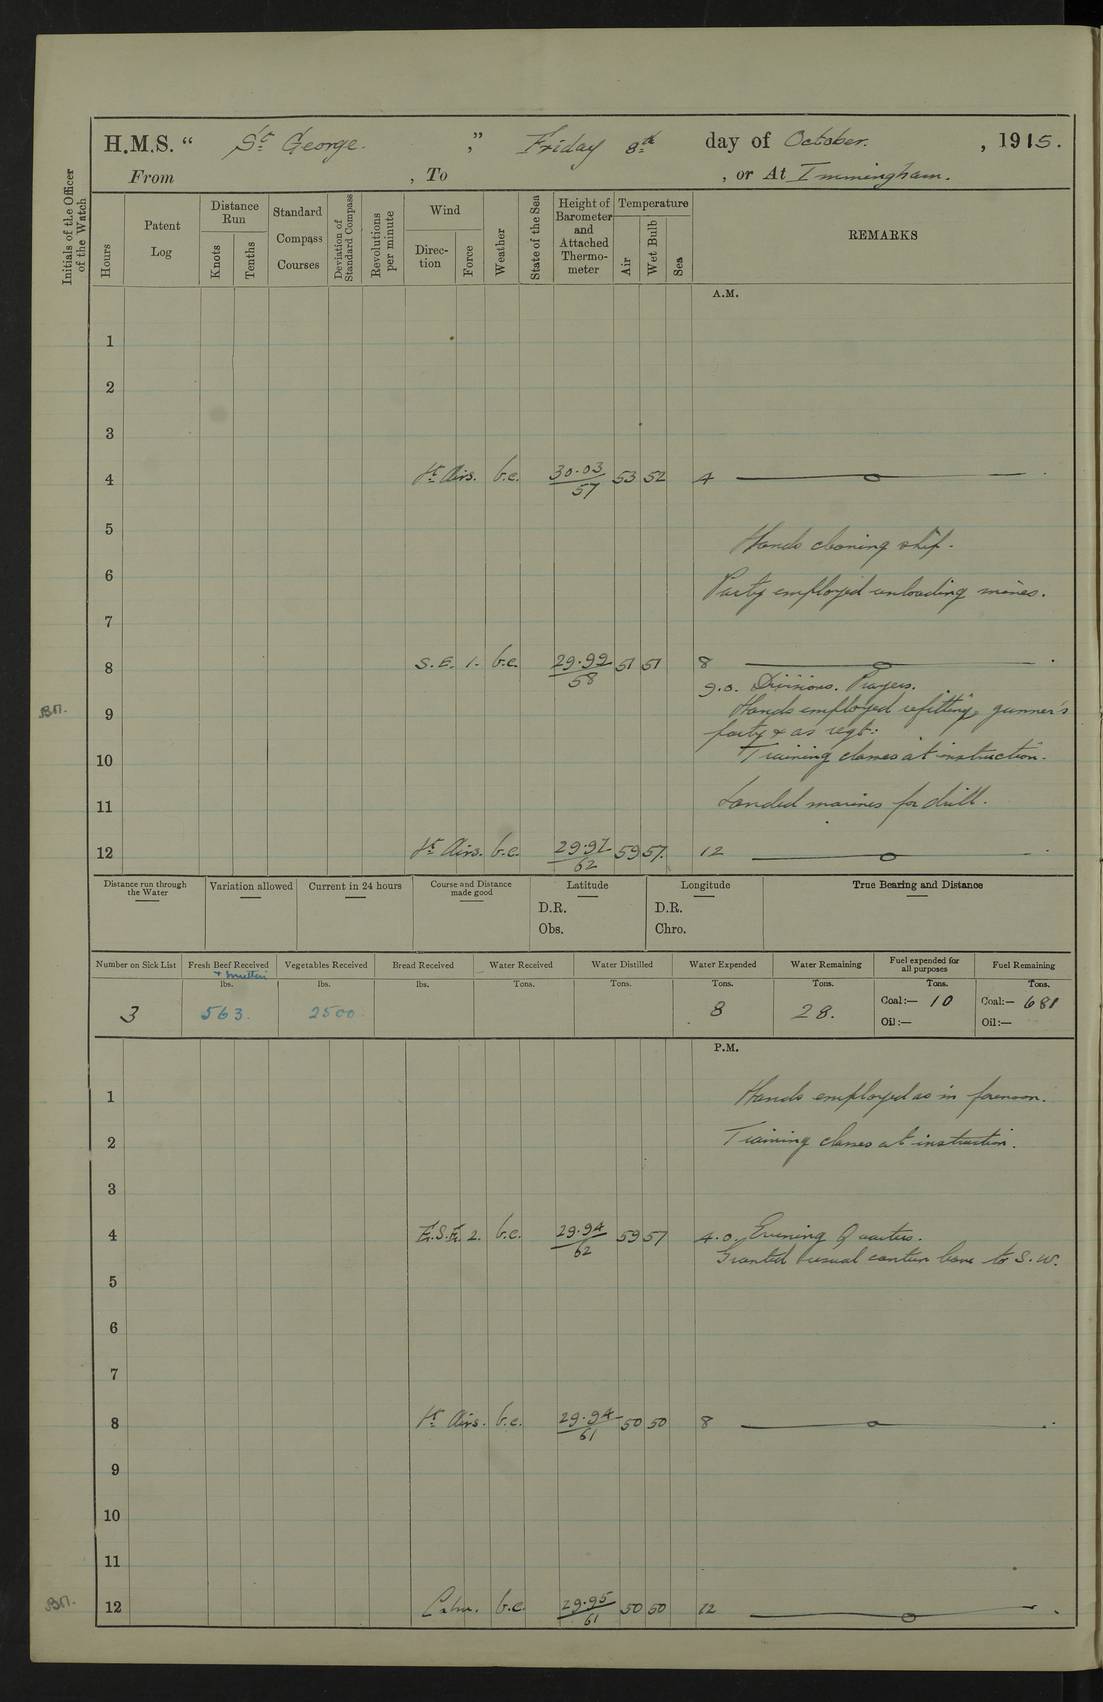 H.M.S. “ St George. ,” Friday 8th day of October. , 1915.
From , To , or At Immingham.
Initials of the Officer of the Watch
Hours
Patent Log
Distance Run
Knots
Tenths
Standard Compass Courses
Deviation of Standard Compass
Revolutions per minute
Wind
Direc-tion
Force
Weather
State of the Sea
Height of Barometer and Attached Thermo-meter
Temperature
Air
Wet Bulb
Sea
REMARKS
A.M.
1
2
3
4 Lt Airs. b.c. 30.03/57 53 52 4
5 Hands cleaning ship.
6 Party employed unloading mines.
7
8 S.E. 1. b.c. 29.99/58 51 51 8
9.0. Divisions. Prayers.
9 Hands employed refitting, gunner's
party & as reqt:
10 Training classes at instruction.
11 Landed marines for drill.
12 Lt Airs. b.c. 29.97/62 59 57. 12
Distance run through the Water
Variation allowed
Current in 24 hours
Course and Distance made good
Latitude
D.R.
Obs.
Longitude
D.R.
Chro.
True Bearing and Distance
Number on Sick List
3
Fresh Beef Received
+ mutton
lbs.
563.
Vegetables Received
lbs.
2500
Bread Received
lbs.
Water Received
Tons.
Water Distilled
Tons.
Water Expended
Tons.
8
Water Remaining
Tons.
28.
Fuel expended for all purposes
Tons.
Coal:— 10
Oil:—
Fuel Remaining
Tons.
Coal:— 681
Oil:—
P.M.
1 Hands employed as in forenoon.
2 Training classes at instruction.
3
4 E.S.E. 2. b.c. 29.94/62 59 57 4.0. Evening Quarters.
Granted usual canteen leave to S.W.
5
6
7
8 Lt Airs. b.c. 29.94/61 50 50 8
9
10
11
12 Calm. b.c. 29.95/61 50 50 12